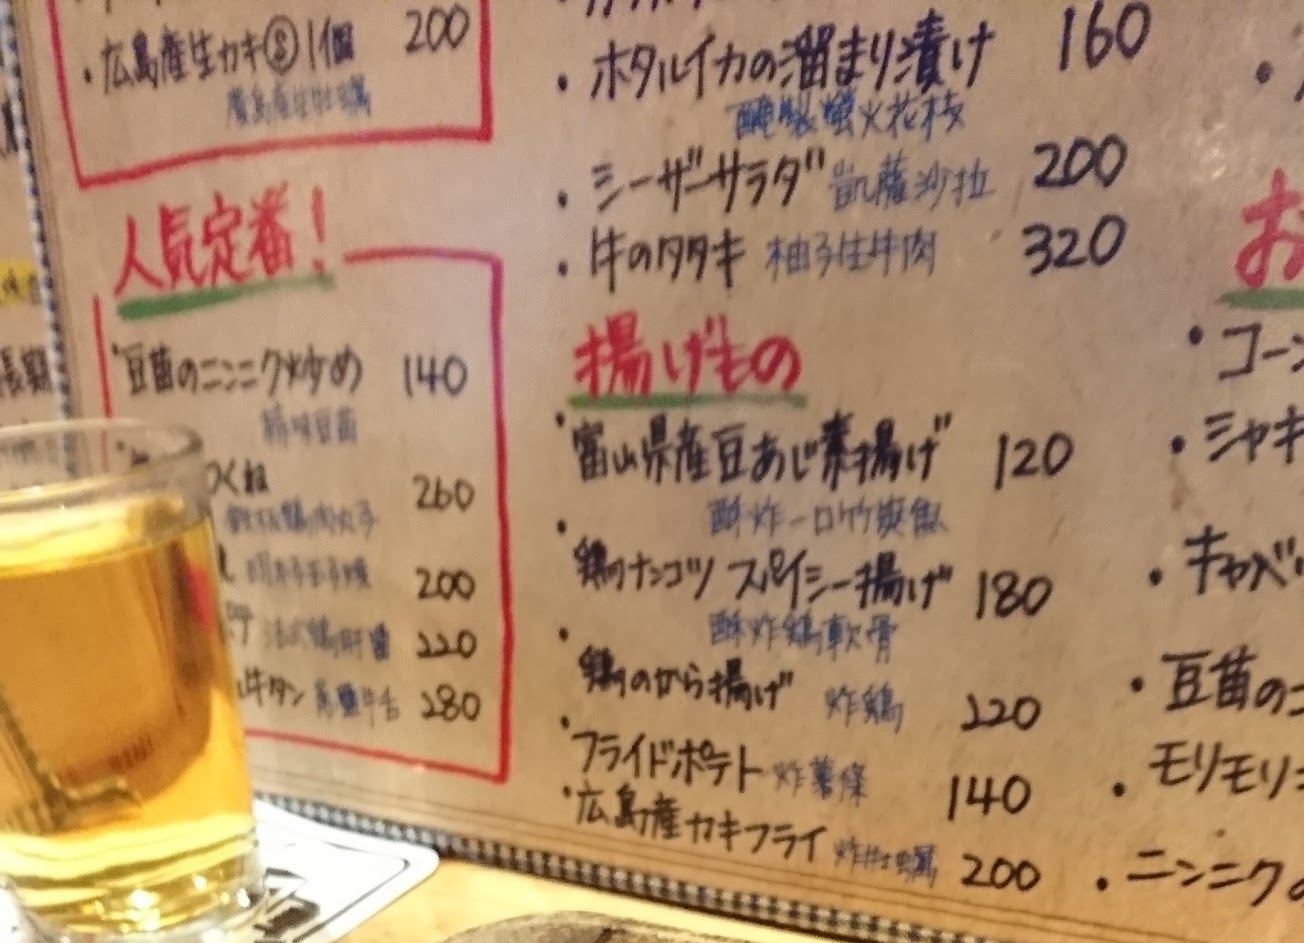 ・広島産生カキ大1個 200
廣島產生牡蠣
人気定番!
・豆苗のニンニク炒め 140
蒜味豆苗
つくね 260
雞肉丸子
200
220
牛タン 牛舌 280
・ホタルイカの溜まり漬け 160
醃製螢火花枝
・シーザーサラダ 凱薩沙拉 200
・牛のタタキ 柚子生牛肉 320
揚げもの
・富山県産豆あじ素揚げ 120
酥炸一口竹筴魚
・鶏のナンコツ スパイシー揚げ 180
酥炸鶏軟骨
・鶏のから揚げ 炸鶏 220
・フライドポテト 炸薯條 140
・広島産カキフライ 炸牡蠣 200
お
・コーン
・シャキ
・キャベ
・豆苗の
・モリモリ
・ニンニクの